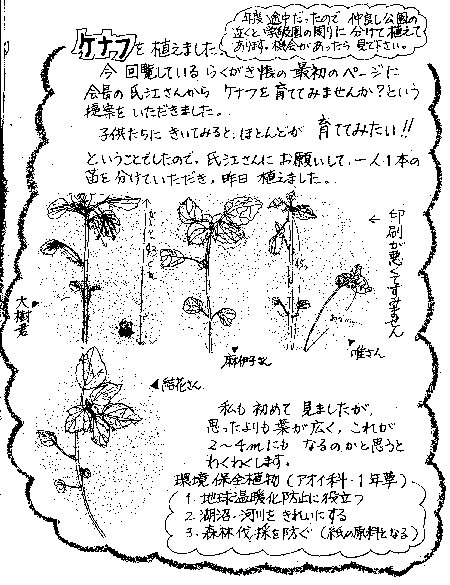 ケナフを植えました。
年度途中だったので仲良し公園の
近くと学級園の周りに分けて植えて
あります。機会があったら見て下さい。
今回覧しているらくがき帳の最初のページに
会長の氏江さんから ケナフを育ててみませんか?という
提案をいただきました。
子供たちにきいてみると、ほとんどが 育ててみたい!!
ということでしたので、氏江さんにお願いして、一人1本の
苗を分けていただき、昨日 植えました。
←印刷が悪くてすみません
大樹君
麻伊子さん
唯さん
結花さん
私も初めて見ましたが、
思ったよりも葉が広く、これが
2〜4mにもなるのかと思うと
わくわくします。
環境保全植物(アオイ科・1年草)
1. 地球温暖化防止に役立つ
2. 湖沼・河川をきれいにする
3. 森林伐採を防ぐ(紙の原料となる)